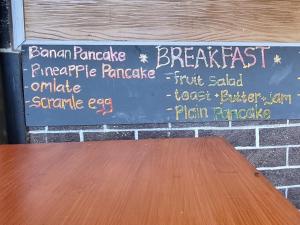 * BREAKFAST *
Banan Pancake
- Pineapple Pancake
- omlate
- scramle egg
- fruit salad
- toast + Butter + Jam
- Plain Pancake